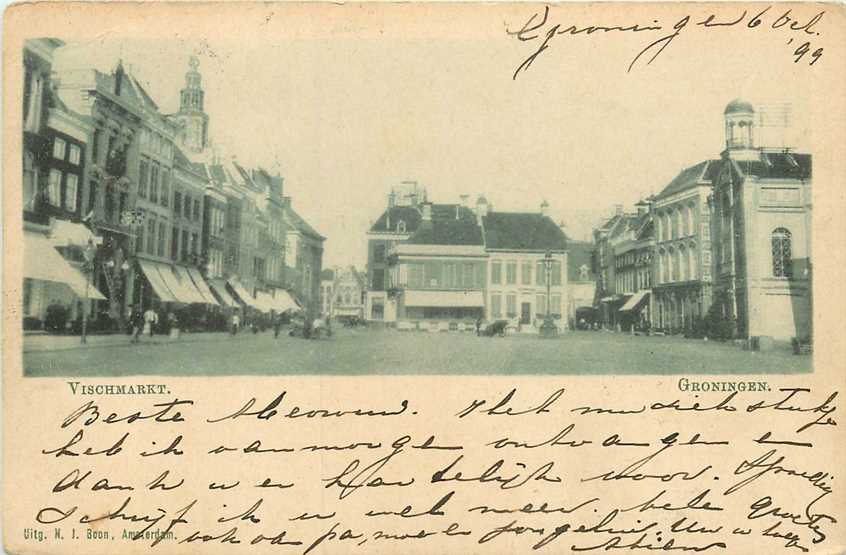 Groningen 6 Oct.
'99
VISCHMARKT.
GRONINGEN.
Beste Mevrouw. Het muziekstukje
heb ik vanmorgen ontvangen en
dank u er hartelijk voor. Spoedig
schrijf ik u wel meer. Vele groeten
ook aan pa, moe en
Uitg. N. J. Boon, Amsterdam.